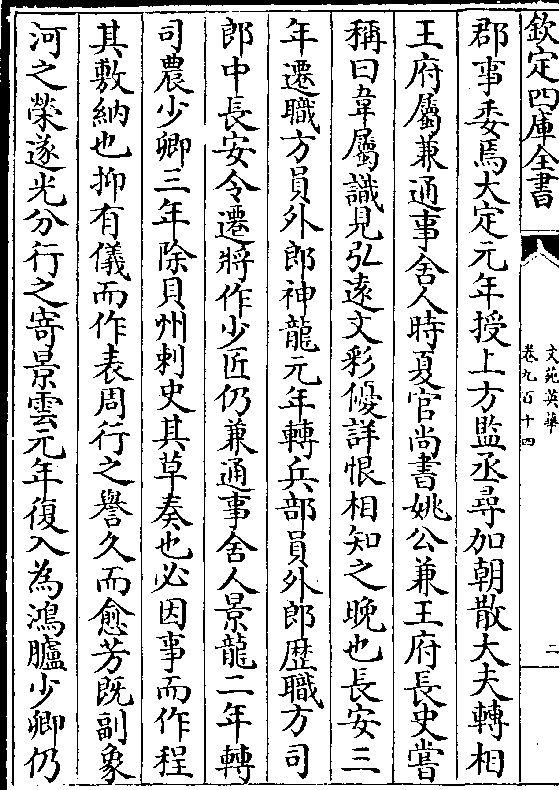 欽定四庫全書
文苑英華
卷九百十四
二
郡事委焉大定元年授上方監丞尋加朝散大夫轉相
王府屬兼通事舍人時夏官尚書姚公兼王府長史嘗
稱曰韋屬識見弘遠文彩優詳恨相知之晚也長安三
年遷職方員外郎神龍元年轉兵部員外郎歴職方司
郎中長安令遷將作少匠仍兼通事舍人景龍二年轉
司農少卿三年除貝州刺史其草奏也必因事而作程
其敷納也抑有儀而作表周行之譽久而愈芳既副象
河之榮遂光分行之寄景雲元年復入為鴻臚少卿仍